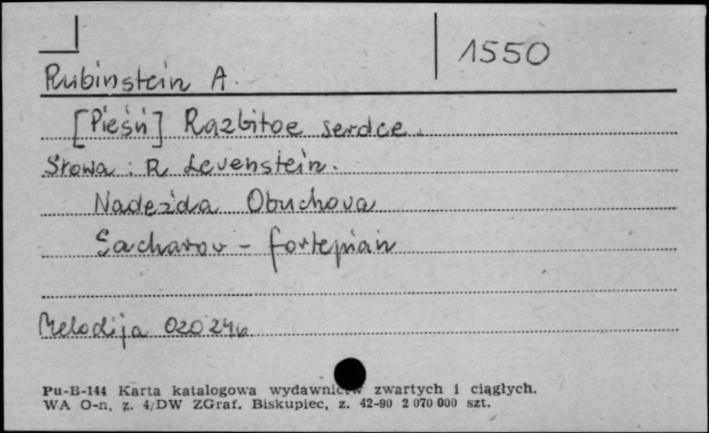 1550
Rubinstein A.
[Pieśń] Razbitoe serdce.
Słowa: R. Levenstein.
Nadežda Obuchova
Sacharov - fortepian
Melodija 020246
Pu-B-144 Karta katalogowa wydawnictw zwartych i ciągłych.
WA O-n, z. 4/DW ZGraf. Biskupiec, z. 42-90 2 070 000 szt.